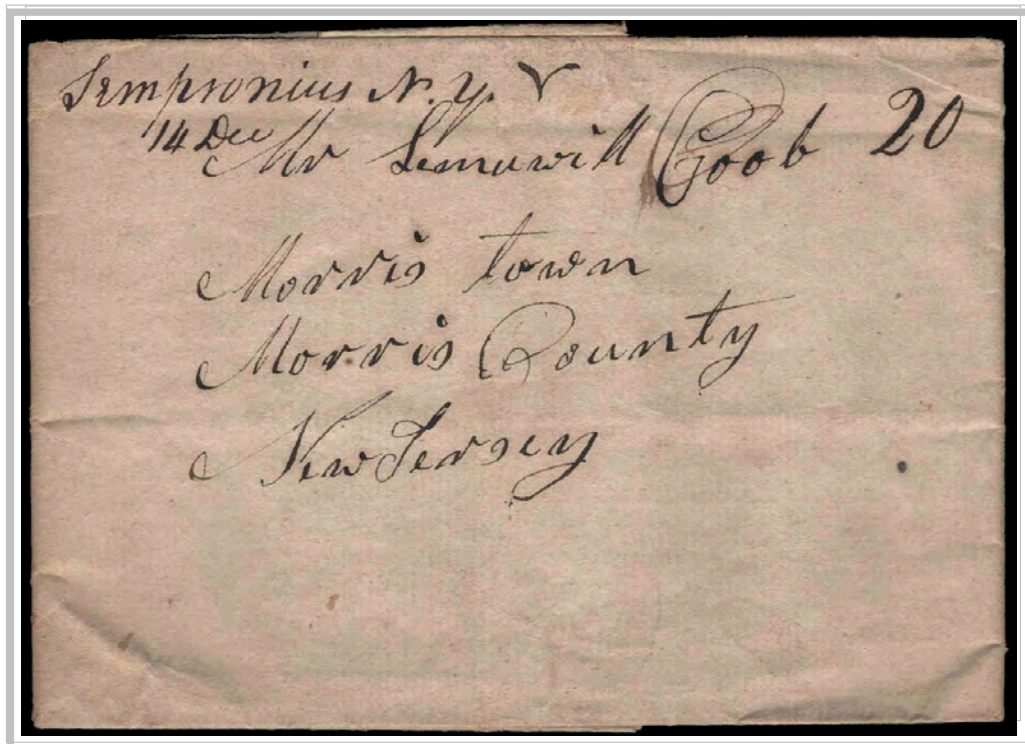 Sempronius N.Y.
14 Dec
Mr Lemuwill Coob 20
Morris town
Morris County
New Jersey